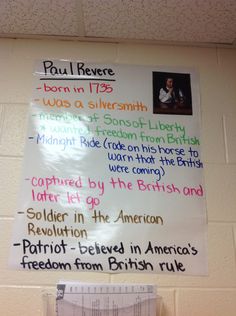 Paul Revere
- born in 1735
- was a silversmith
- member of Sons of Liberty
& wanted freedom from British
- Midnight Ride (rode on his horse to
warn that the British
were coming)
- captured by the British and
later let go
- Soldier in the American
Revolution
- Patriot - believed in America's
freedom from British rule